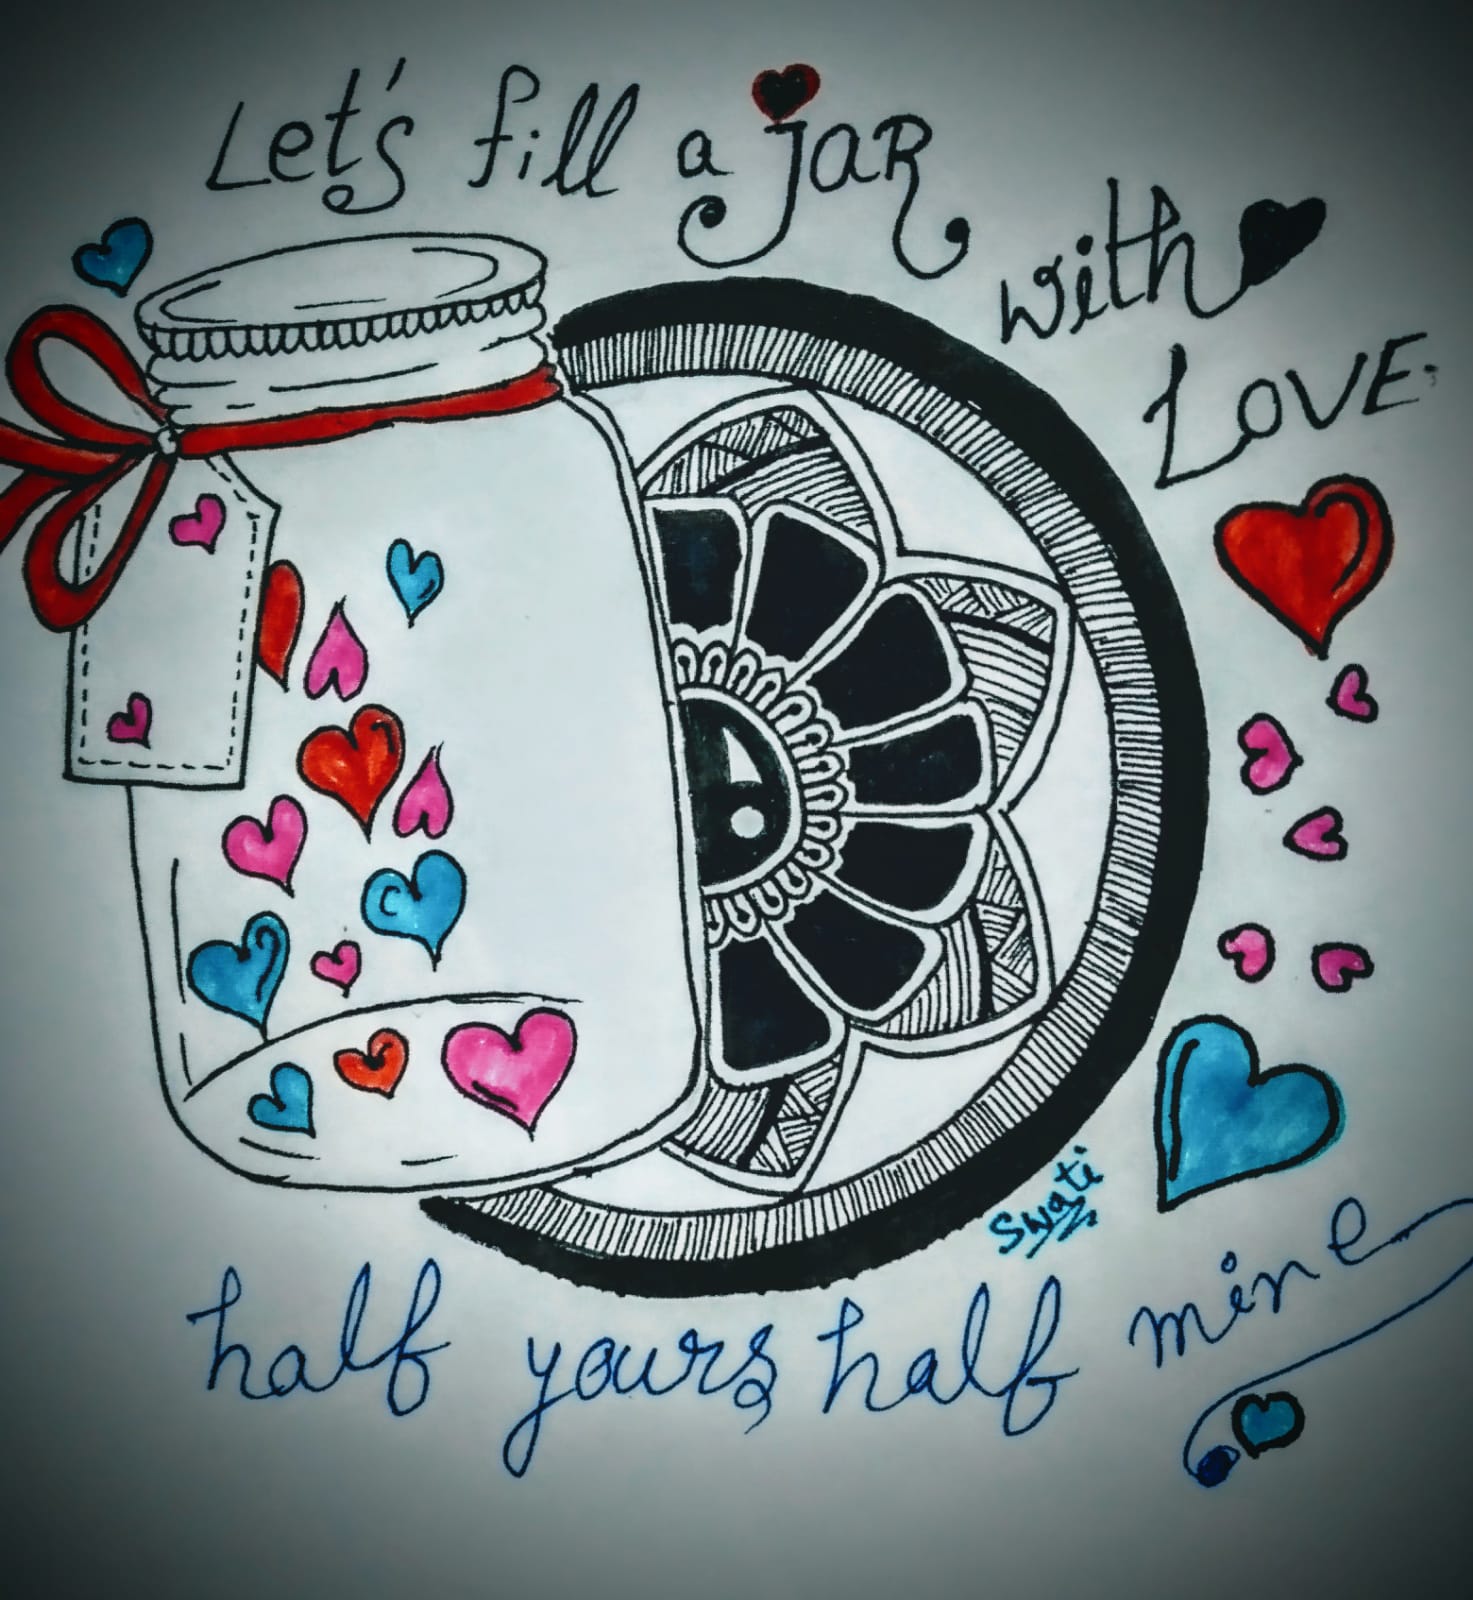 Let's fill a jaR
with
LOVE.
Swati
half yours half mine